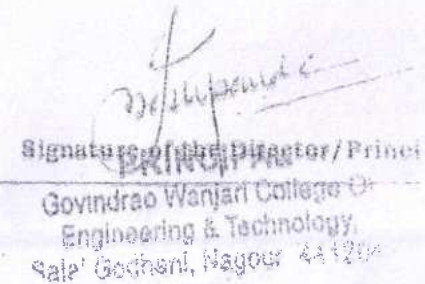 Deshpande
Signature of the Director/Princi
PRINCIPAL
Govindrao Wanjari College Of
Engineering & Technology,
Salai Godhani, Nagpur 441204